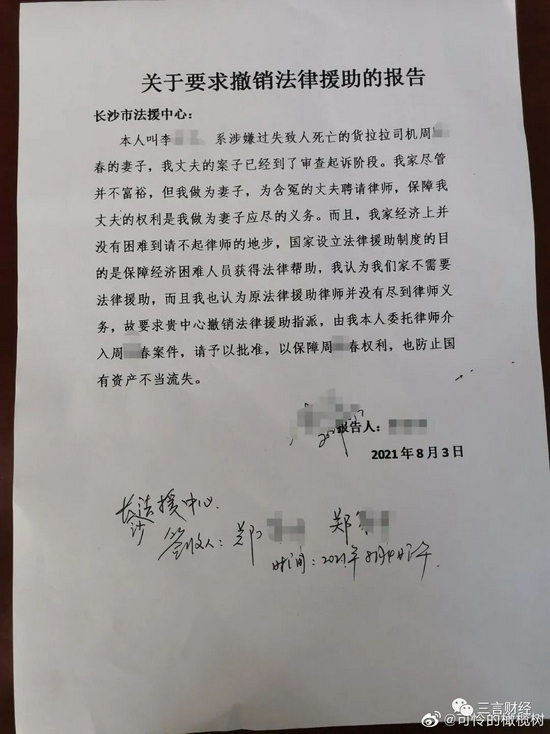 关于要求撤销法律援助的报告
长沙市法援中心：
本人叫李 系涉嫌过失致人死亡的货拉拉司机周
春的妻子，我丈夫的案子已经到了审查起诉阶段。我家尽管
并不富裕，但我做为妻子，为含冤的丈夫聘请律师，保障我
丈夫的权利是我做为妻子应尽的义务。而且，我家经济上并
没有困难到请不起律师的地步，国家设立法律援助制度的目
的是保障经济困难人员获得法律帮助，我认为我们家不需要
法律援助，而且我也认为原法律援助律师并没有尽到律师义
务，故要求贵中心撤销法律援助指派，由我本人委托律师介
入周 春案件，请予以批准，以保障周 春权利，也防止国
有资产不当流失。
报告人：
2021年8月3日
长沙法援中心
签收人：郑 郑
时间：2021年8月4日下午
三言财经
@可怜的橄榄树